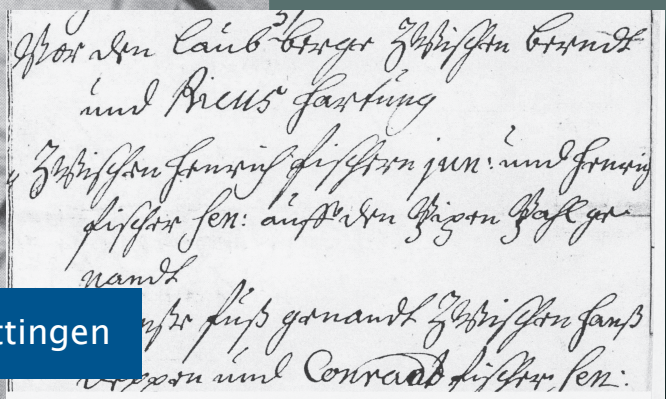 Vor den Laubberge Zwischen berndt
und Ricus Hartung
Zwischen Henrich fischern jun: und Henrich
fischer sen: auff den
nandt
fuß genandt Zwischen Hanß
und Conradt fischer sen:
ttingen